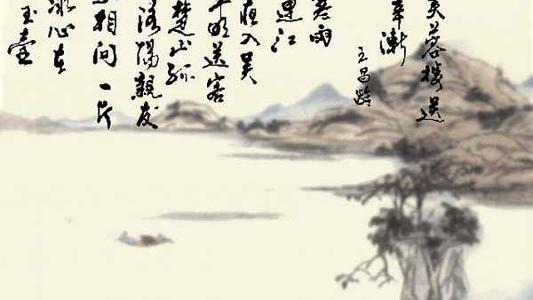 芙蓉樓送
辛漸
王昌齡
寒雨
連江
夜入吴
平明送客
楚山孤
洛陽親友
如相问一片
冰心在
玉壺